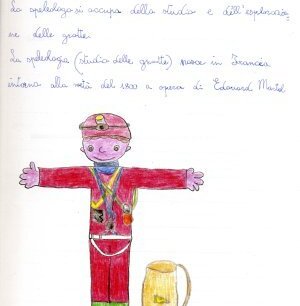 Lo speleologo si occupa dello studio e dell'esplorazio-
ne delle grotte.
La speleologia (studio delle grotte) nasce in Francia
intorno alla metà del 1800 a opera di Edouard Martel